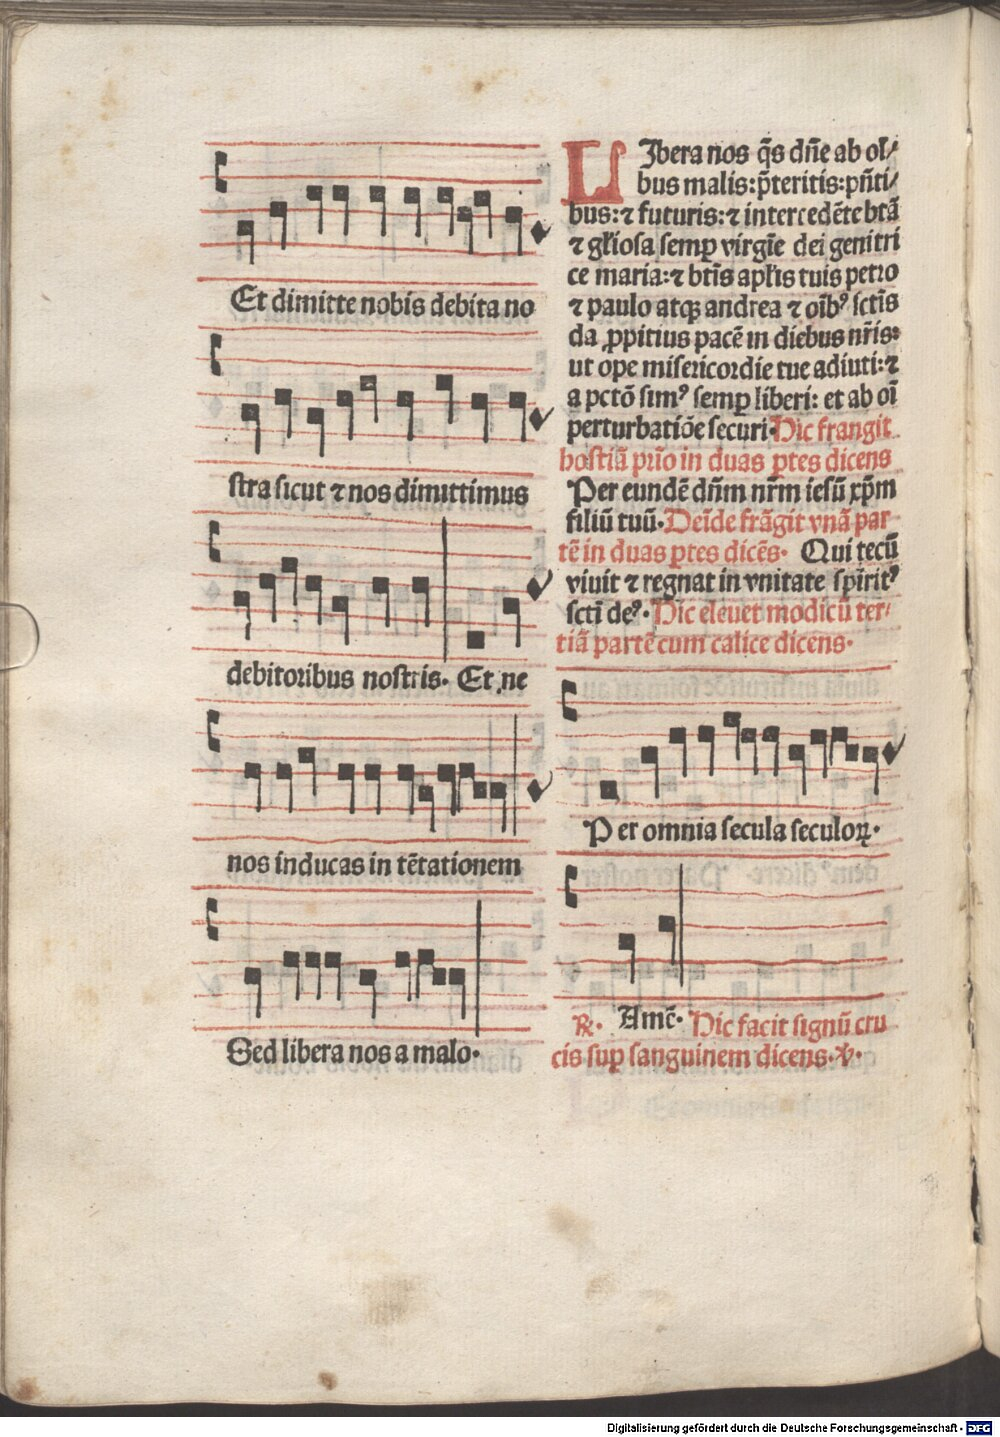 Et dimitte nobis debita no
stra sicut ⁊ nos dimittimus
debitoribus nostris. Et ne
nos inducas in tētationem
Sed libera nos a malo.
LJbera nos q̄s dn̄e ab oī⸗
bus malis: p̄teritis: pn̄ti⸗
bus: ⁊ futuris: ⁊ intercedēte btā
⁊ gl̄iosa semꝑ virgīe dei genitri
ce maria: ⁊ btīs apl̄is tuis petro
⁊ paulo atqꝫ andrea ⁊ oībꝰ sctīs
da ꝓpitius pacē in diebus nr̄is:
ut ope misericordie tue adiuti: ⁊
a pctō simꝰ semꝑ liberi: et ab oī
perturbatiōe securi. Hic frangit
hostiā prīo in duas ꝑtes dicens
Per eundē dn̄m nr̄m iesū xp̄m
filiū tuū. Deīde frāgit vnā par
tē in duas ꝑtes dicēs. Qui tecū
viuit ⁊ regnat in vnitate spīritꝰ
sctī deꝰ. Hic eleuet modicū ter⸗
tiā partē cum calice dicens.
Per omnia secula seculoꝝ.
℟. Amē. Hic facit signū cru
cis suꝑ sanguinem dicens. ℣.
Digitalisierung gefördert durch die Deutsche Forschungsgemeinschaft - DFG